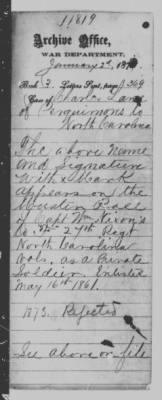 11819
Archive Office,
WAR DEPARTMENT,
January 2d, 187
Book 3. Letters Sent, page 369
Case of Charles Lane
of Perquimons Co
North Carolina
The above Name
and Signature
With X Mark
appears on the
Muster Roll
of Capt Wm Nixon's
Co. 27th Regt
North Carolina
Vols. as a Private
Soldier Enlisted
May 16th 1861.
1873. Rejected
See above on file